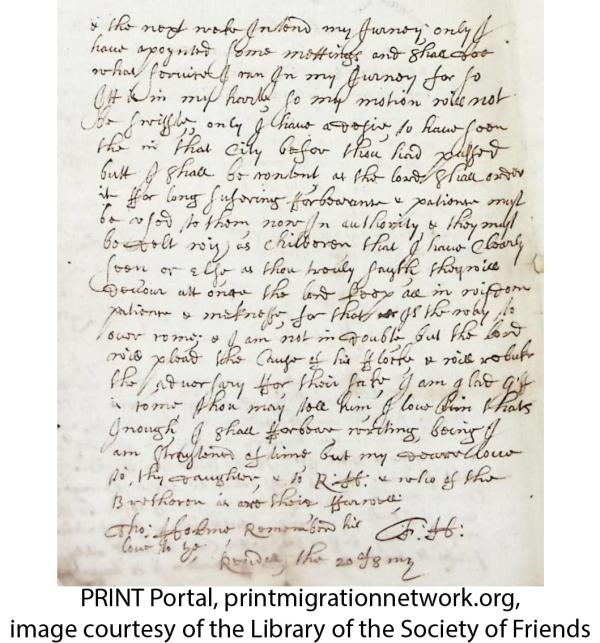 & the next weke I intend my Jurney, only I
have apoynted some mettings and shall doe
what service I can In my Jurney for so
Itt is in my harte so my motion will not
be swifte, only I have a desire to have seen
the in that City before thou had passed
butt I shall be content as the lord shall order
it ffor long sufering fforbearance & patience must
be used to them now In authority & they must
be delt with as Childeren that I have Clearly
seen or else as thou truly sayth they will
devour all once the lord keep all in wisdom
patience & meknesse for that is the way to
over come; & I am not in double but the lord
will plead the Cause of his fflocke & will rebuke
the adversary ffor their sake I am glad
is come thou may tell him I love him thats
Inough I shall fforbear writing being I
am straytened of time but my deare love
to thy daughter, & to R: H: & who of the
Bretheren is are their ffarwell:
Tho: Holme Remembend his F: H:
love to ye
Kendal the 20 of 8 m
PRINT Portal, printmigrationnetwork.org,
image courtesy of the Library of the Society of Friends